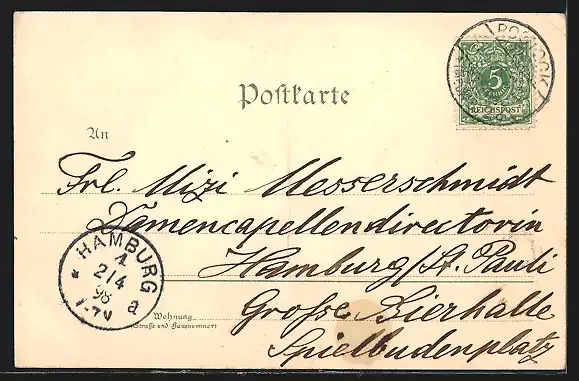 ROSTOCK
5
REICHSPOST
Postkarte
An
Frl. Mizi Messerschmidt
Damencapellendirectorin
Hamburg/St. Pauli
Grosse Bierhalle
Spielbudenplatz
Wohnung
(Straße und Hausnummer)
* HAMBURG a
1.
2/4
98